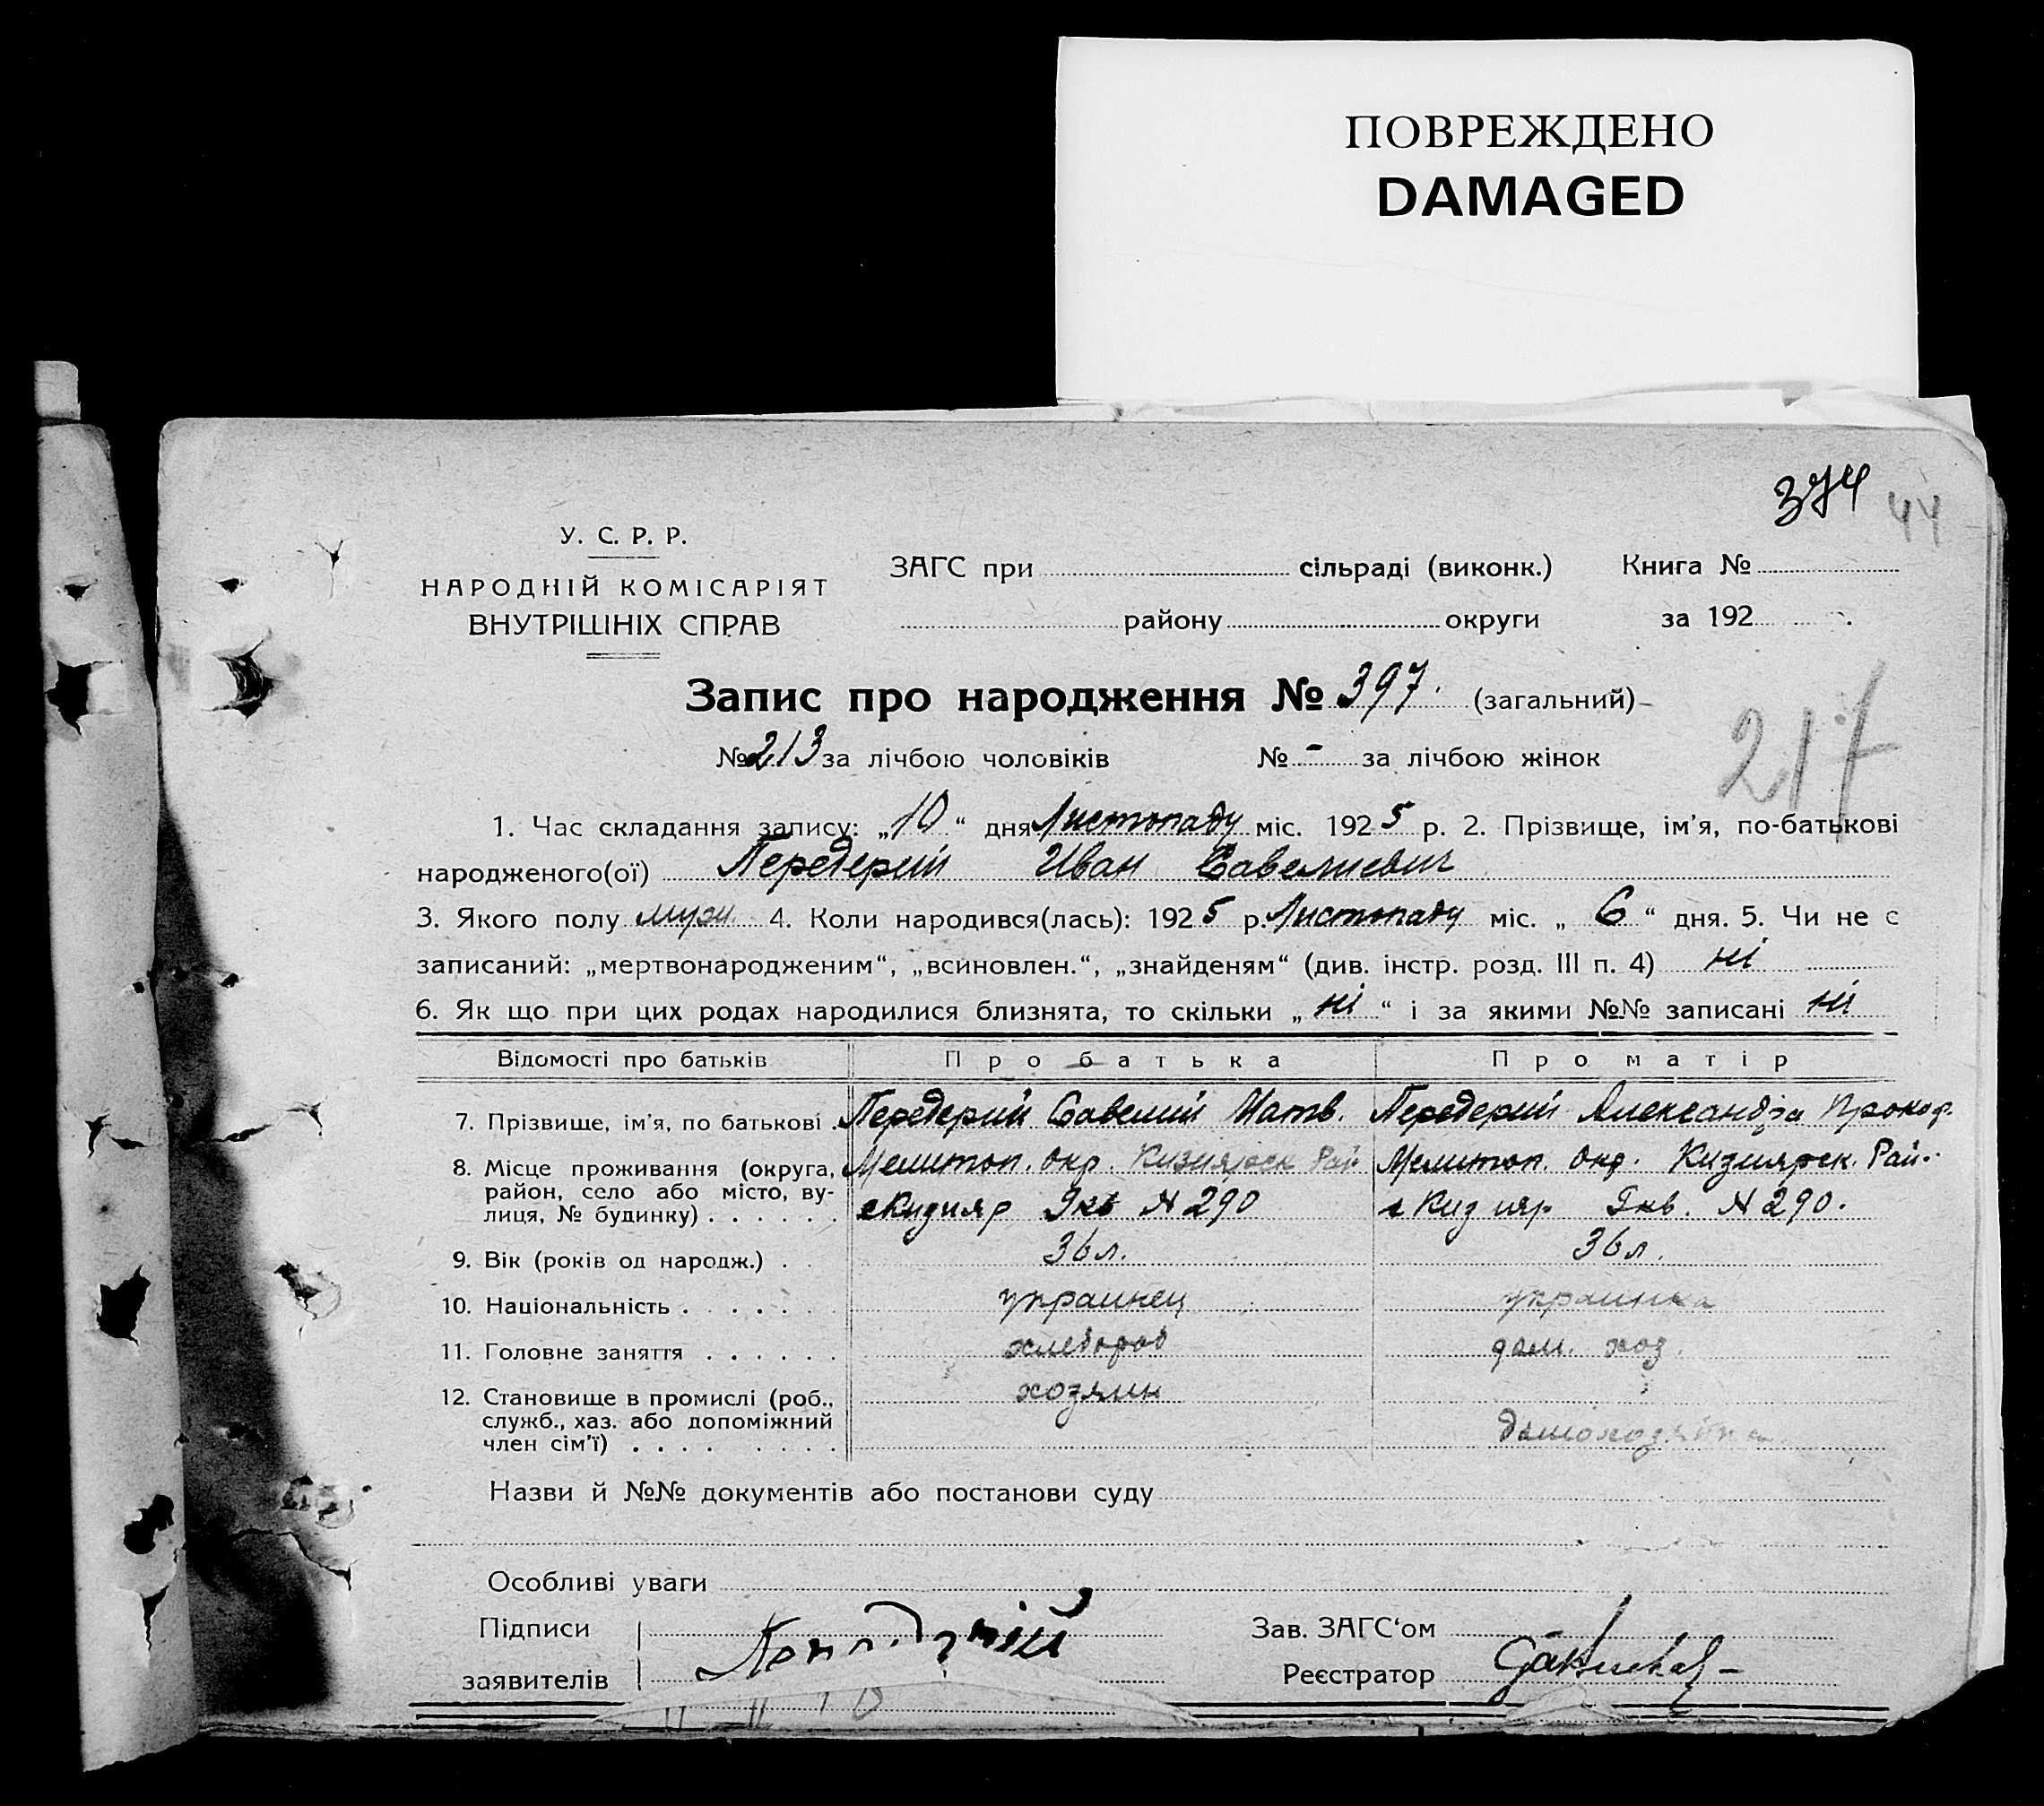 ПОВРЕЖДЕНО
DAMAGED
374 44
У. С. Р. Р.
НАРОДНІЙ КОМІСАРІЯТ
ВНУТРІШНІХ СПРАВ
ЗАГС при сільраді (виконк.) Книга №
району округи за 192 .
Запис про народження № 397. (загальний)
№ 213 за лічбою чоловіків № - за лічбою жінок
217
1. Час складання запису: „10“ дня Листопаду міс. 1925 р. 2. Прізвище, ім'я, по-батькові
народженого(ої) Передерий Иван Савелиевич
3. Якого полу муж. 4. Коли народився(лась): 1925 р. Листопаду міс. „ 6 “ дня. 5. Чи не є
записаний: „мертвонародженим“, „всиновлен.“, „знайденям“ (див. інстр. розд. III п. 4) ні
6. Як що при цих родах народилися близнята, то скільки „ ні “ і за якими №№ записані ні
Відомості про батьків Про батька Про матір
7. Прізвище, ім'я, по батькові . Передерий Савелий Матв. Передерий Александра Прокоф.
8. Місце проживання (округа, Мелитоп. окр. Кизиярск Рай Мелитоп. окр. Кизиярск. Рай.
район, село або місто, ву-
лиця, № будинку) . . . . . . с Кизияр 9 кв N 290 с Кизияр кв. N 290.
9. Вік (років од народж.) . . 36 л. 36 л.
10. Національність . . . . . . украинец украинка
11. Головне заняття . . . . . . хлебороб дом. хоз.
12. Становище в промислі (роб., хозяин
служб., хаз. або допоміжний
член сім'ї) . . . . . . . . домохозяйка
Назви й №№ документів або постанови суду
Особливі уваги
Підписи
заявителів
Зав. ЗАГС'ом
Реєстратор